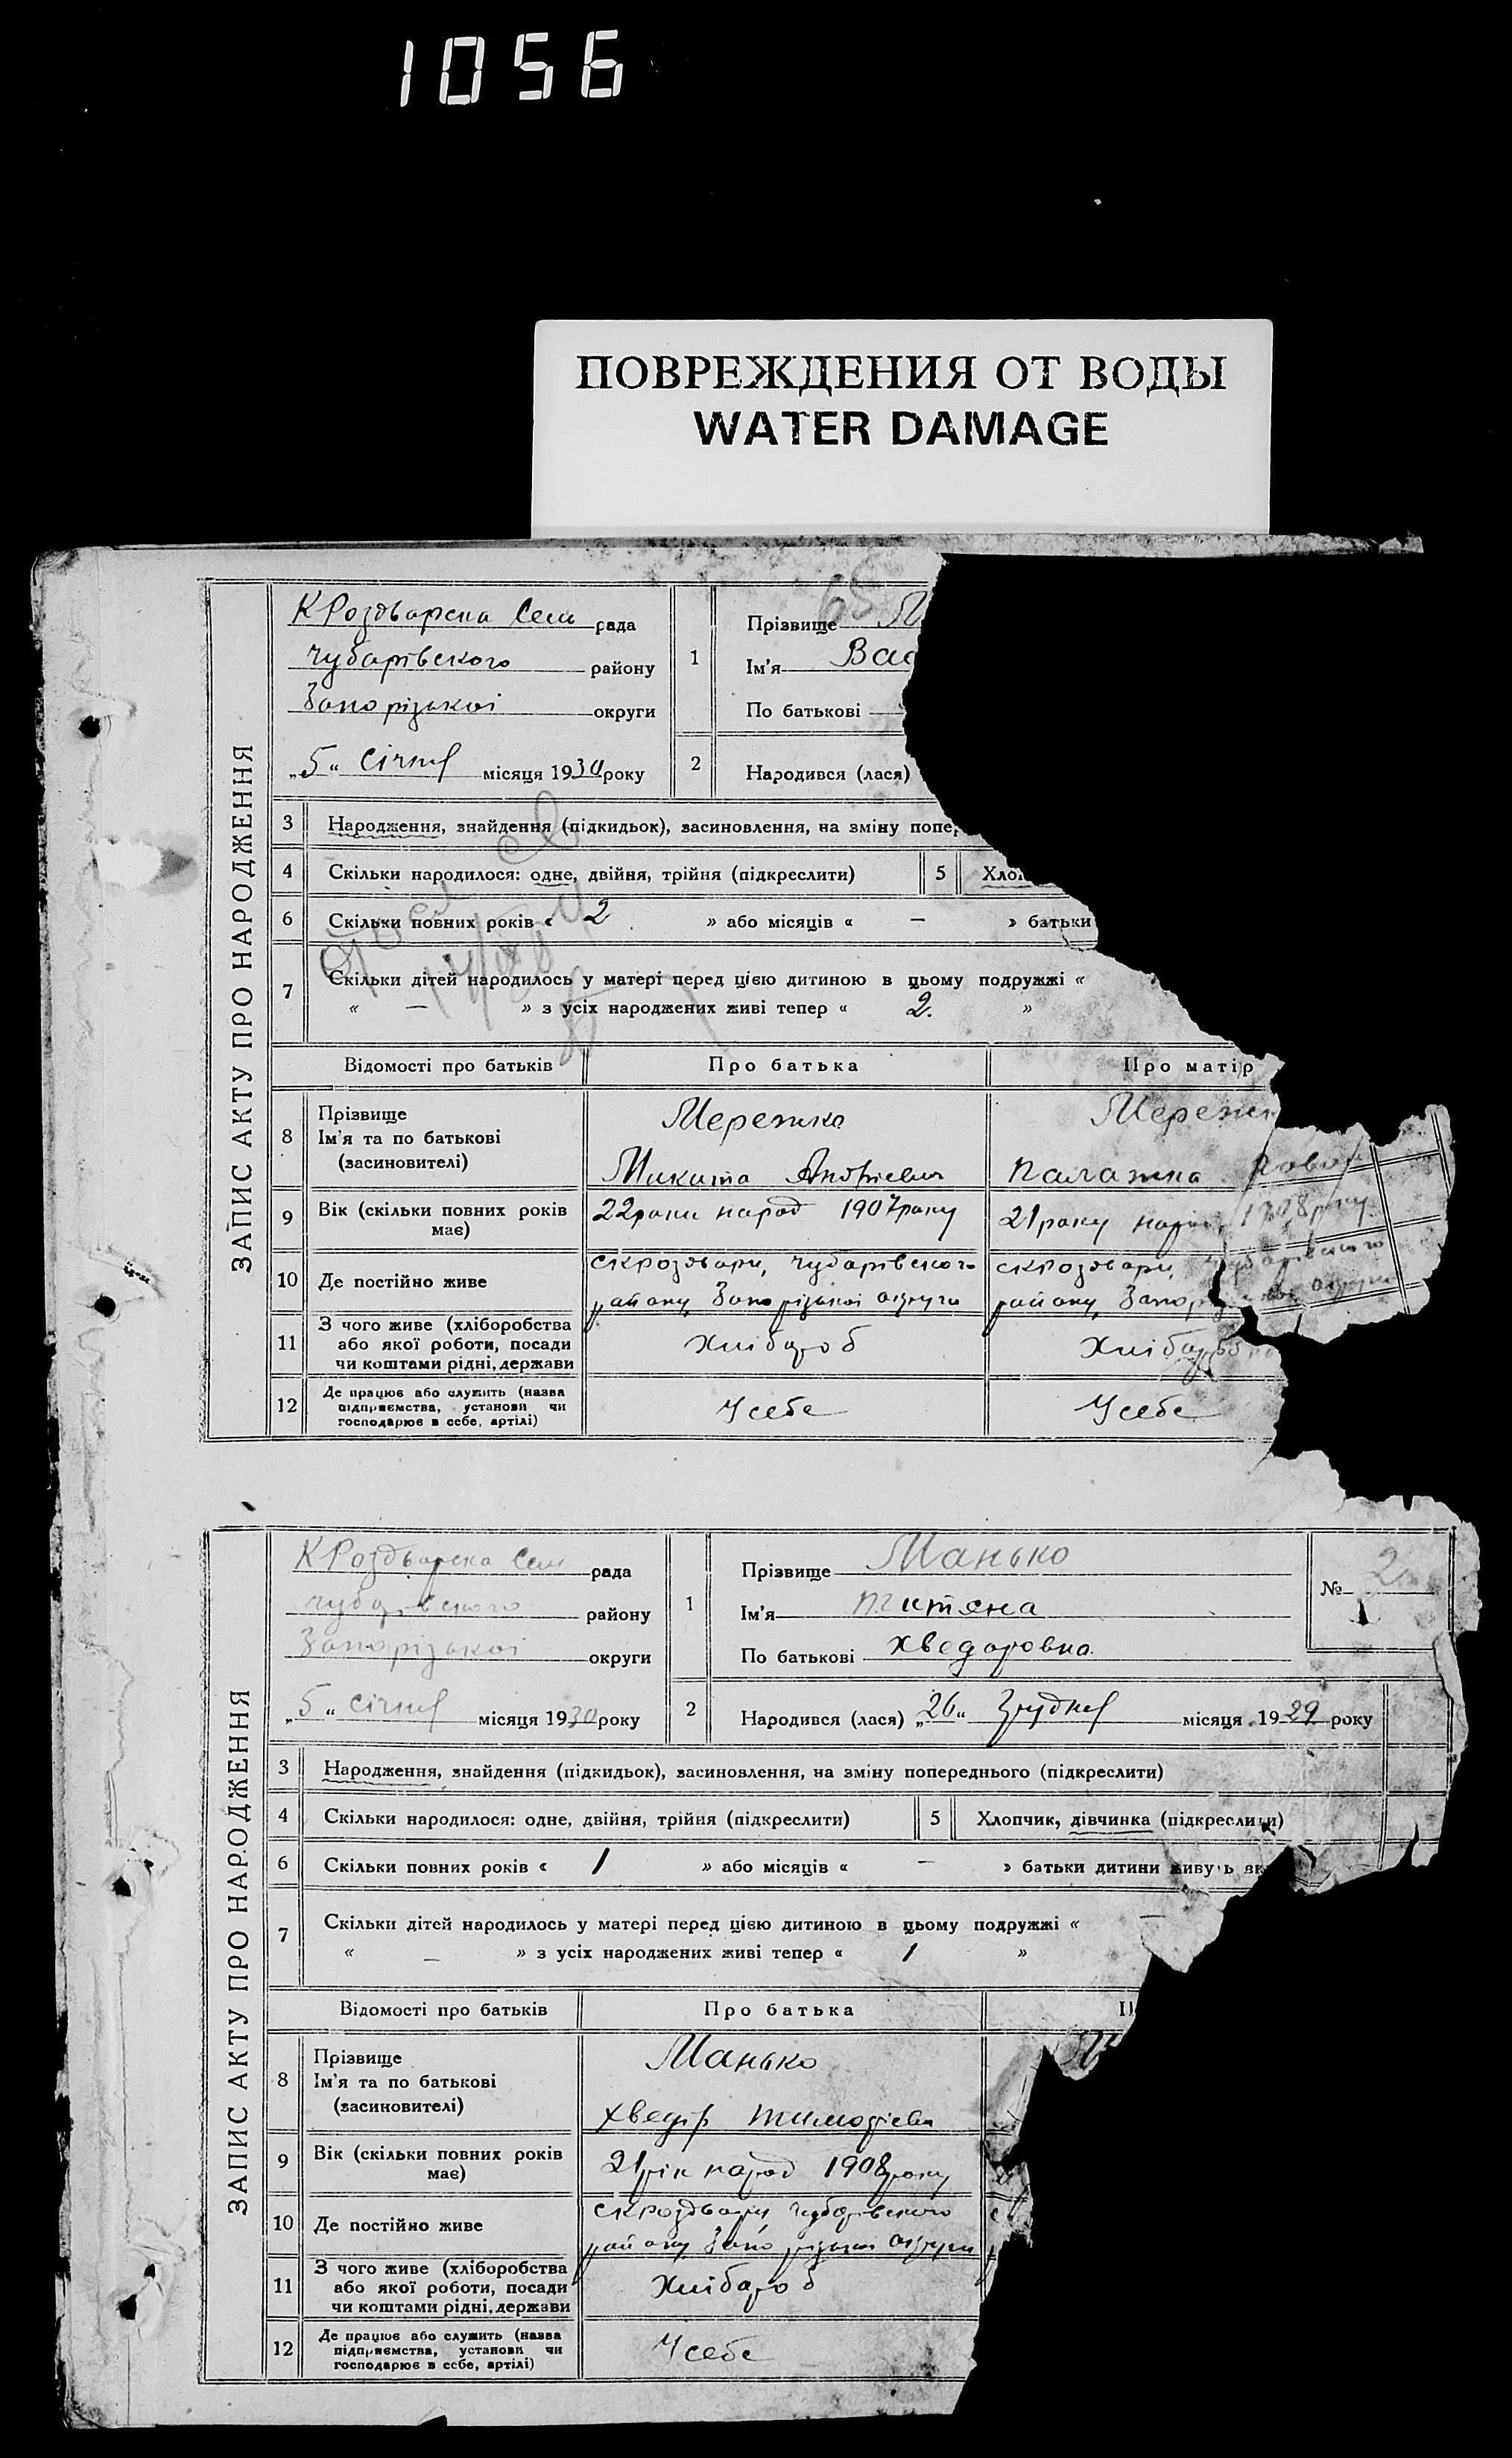 1056
ПОВРЕЖДЕНИЯ ОТ ВОДЫ
WATER DAMAGE
ЗАПИС АКТУ ПРО НАРОДЖЕННЯ
КРоздварска Сель рада
Чубарівского району
Запорізькоі округи
„5“ січня місяця 1930 року
1
65
Прізвище
Ім'я Вас
По батькові
2 Народився (лася)
3 Народження, знайдення (підкидьок), засиновлення, на зміну попер
4 Скільки народилося: одне, двійня, трійня (підкреслити) 5 Хлоп
6 Скільки повних років « 2 » або місяців « — » батьки
7 Скільки дітей народилось у матері перед цією дитиною в цьому подружжі «
« — » з усіх народжених живі тепер « 2. »
Відомості про батьків Про батька Про матір
8 Прізвище
Ім'я та по батькові
(засиновителі)
Мережко Мереж
Микита Андрієвич Палажка
9 Вік (скільки повних років має) 22 роки народ 1907 року 21 року народ 1908 року
10 Де постійно живе
скроздвари, Чубарівского скроздвари, Чубарівского
району Запорізькоі округи району Запор округи
11 З чого живе (хліборобства
або якої роботи, посади
чи коштами рідні, держави
Хлібароб Хлібароб
12 Де працює або служить (назва
підприємства, установи чи
господарює в себе, артілі)
Усебе Усебе
ЗАПИС АКТУ ПРО НАРОДЖЕННЯ
КРоздварска Сель рада
Чубарівского району
Запорізькоі округи
„5“ січня місяця 1930 року
1 Прізвище Манько
Ім'я Титяна
По батькові Хведоровна
№ 2
2 Народився (лася) „26“ Грудня місяця 1929 року
3 Народження, знайдення (підкидьок), засиновлення, на зміну попереднього (підкреслити)
4 Скільки народилося: одне, двійня, трійня (підкреслити) 5 Хлопчик, дівчинка (підкреслити)
6 Скільки повних років « 1 » або місяців « — » батьки дитини живуть як
7 Скільки дітей народилось у матері перед цією дитиною в цьому подружжі « —
« — » з усіх народжених живі тепер « 1 »
Відомості про батьків Про батька
8 Прізвище
Ім'я та по батькові
(засиновителі)
Манько
Хведір Тимофієвич
9 Вік (скільки повних років має) 21 рік народ 1908 року
10 Де постійно живе
скроздвари Чубарівского
району Запорізькоі округи
11 З чого живе (хліборобства
або якої роботи, посади
чи коштами рідні, держави
Хлібароб
12 Де працює або служить (назва
підприємства, установи чи
господарює в себе, артілі)
Усебе